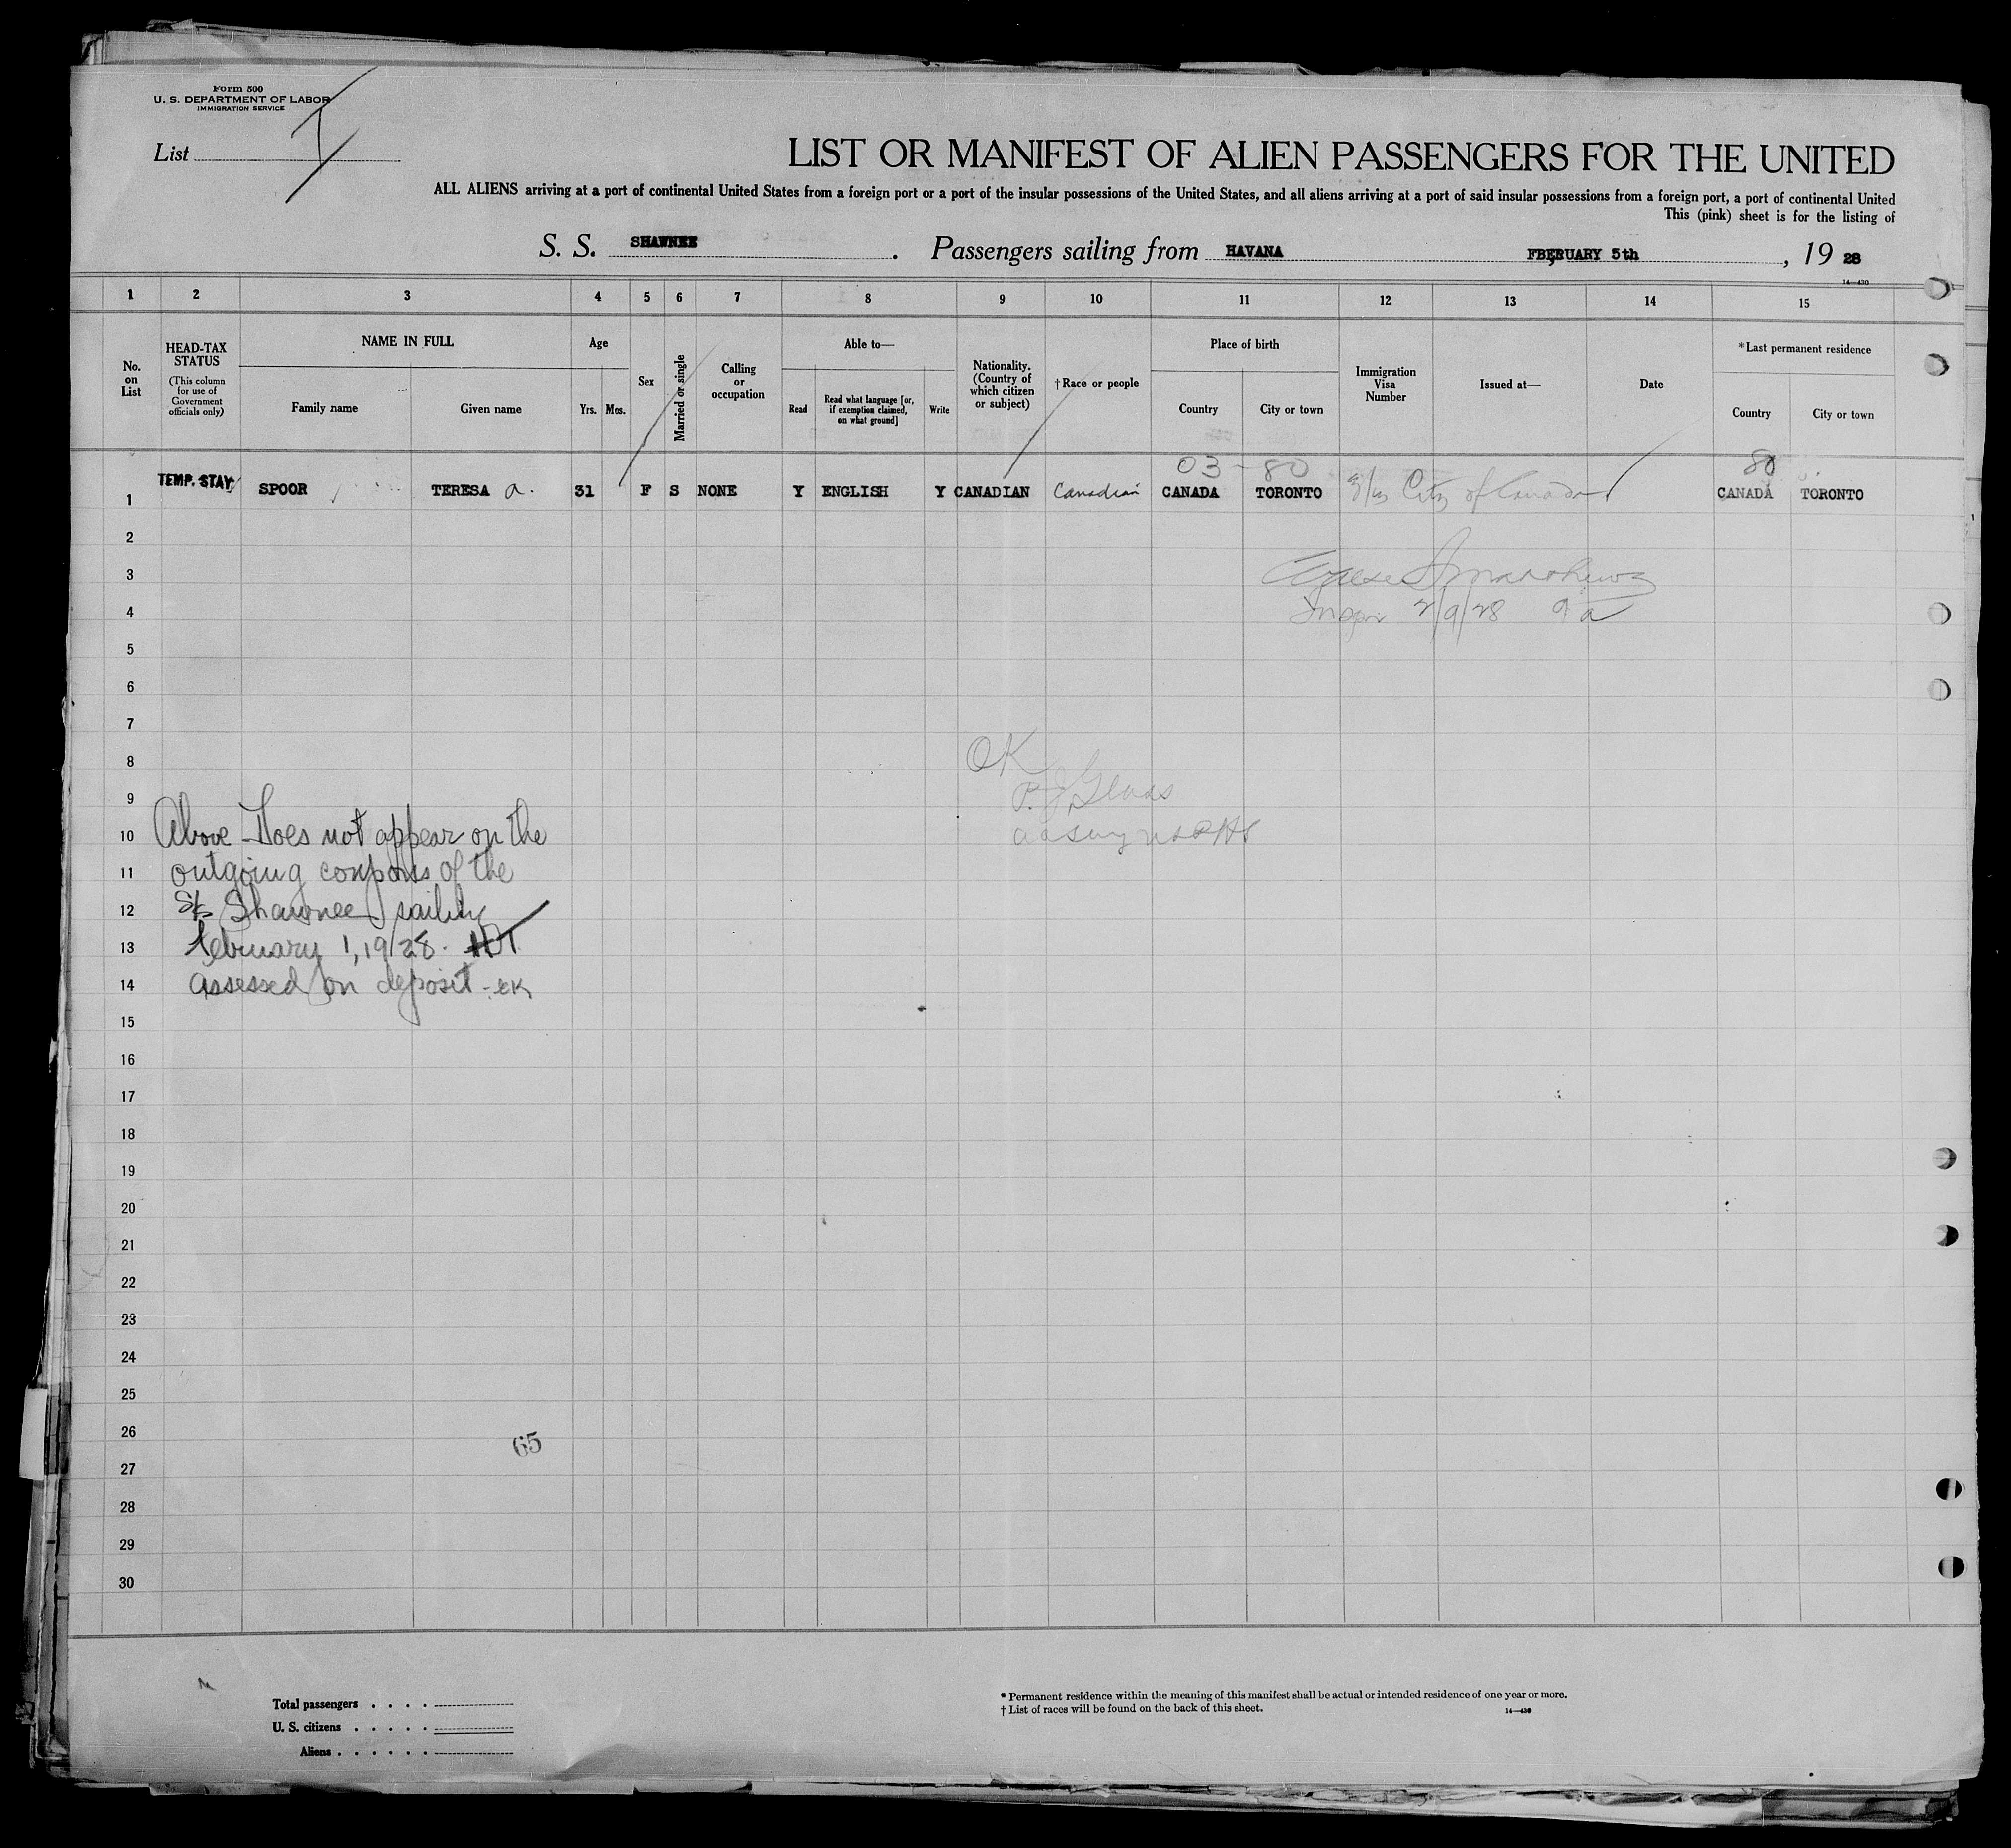 Form 500
U. S. DEPARTMENT OF LABOR
IMMIGRATION SERVICE
List I
LIST OR MANIFEST OF ALIEN PASSENGERS FOR THE UNITED
ALL ALIENS arriving at a port of continental United States from a foreign port or a port of the insular possessions of the United States, and all aliens arriving at a port of said insular possessions from a foreign port, a port of continental United
This (pink) sheet is for the listing of
S. S. SHAWNEE . Passengers sailing from HAVANA FBERUARY 5th , 19 28
14—430
1 2 3 4 5 6 7 8 9 10 11 12 13 14 15
No. on List
HEAD-TAX STATUS
(This column for use of Government officials only)
NAME IN FULL
Family name Given name
Age
Yrs. Mos.
Sex
Married or single
Calling or occupation
Able to—
Read
Read what language [or, if exemption claimed, on what ground]
Write
Nationality. (Country of which citizen or subject)
†Race or people
Place of birth
Country City or town
Immigration Visa Number
Issued at—
Date
*Last permanent residence
Country City or town
03-80 80
1 TEMP. STAY SPOOR TERESA a. 31 F S NONE Y ENGLISH Y CANADIAN Canadian CANADA TORONTO City of Canada CANADA TORONTO
2
3
4 2/9/28 9a
5
6
7
8 OK
9
10 Above Does not appear on the
11 outgoing coupons of the
12 S/S Shawnee sailing
13 February 1, 1928. HDT
14 assessed on deposit - EK
15
16
17
18
19
20
21
22
23
24
25
26
65
27
28
29
30
Total passengers . . . .
U. S. citizens . . . . .
Aliens . . . . . .
* Permanent residence within the meaning of this manifest shall be actual or intended residence of one year or more.
† List of races will be found on the back of this sheet.
14—430